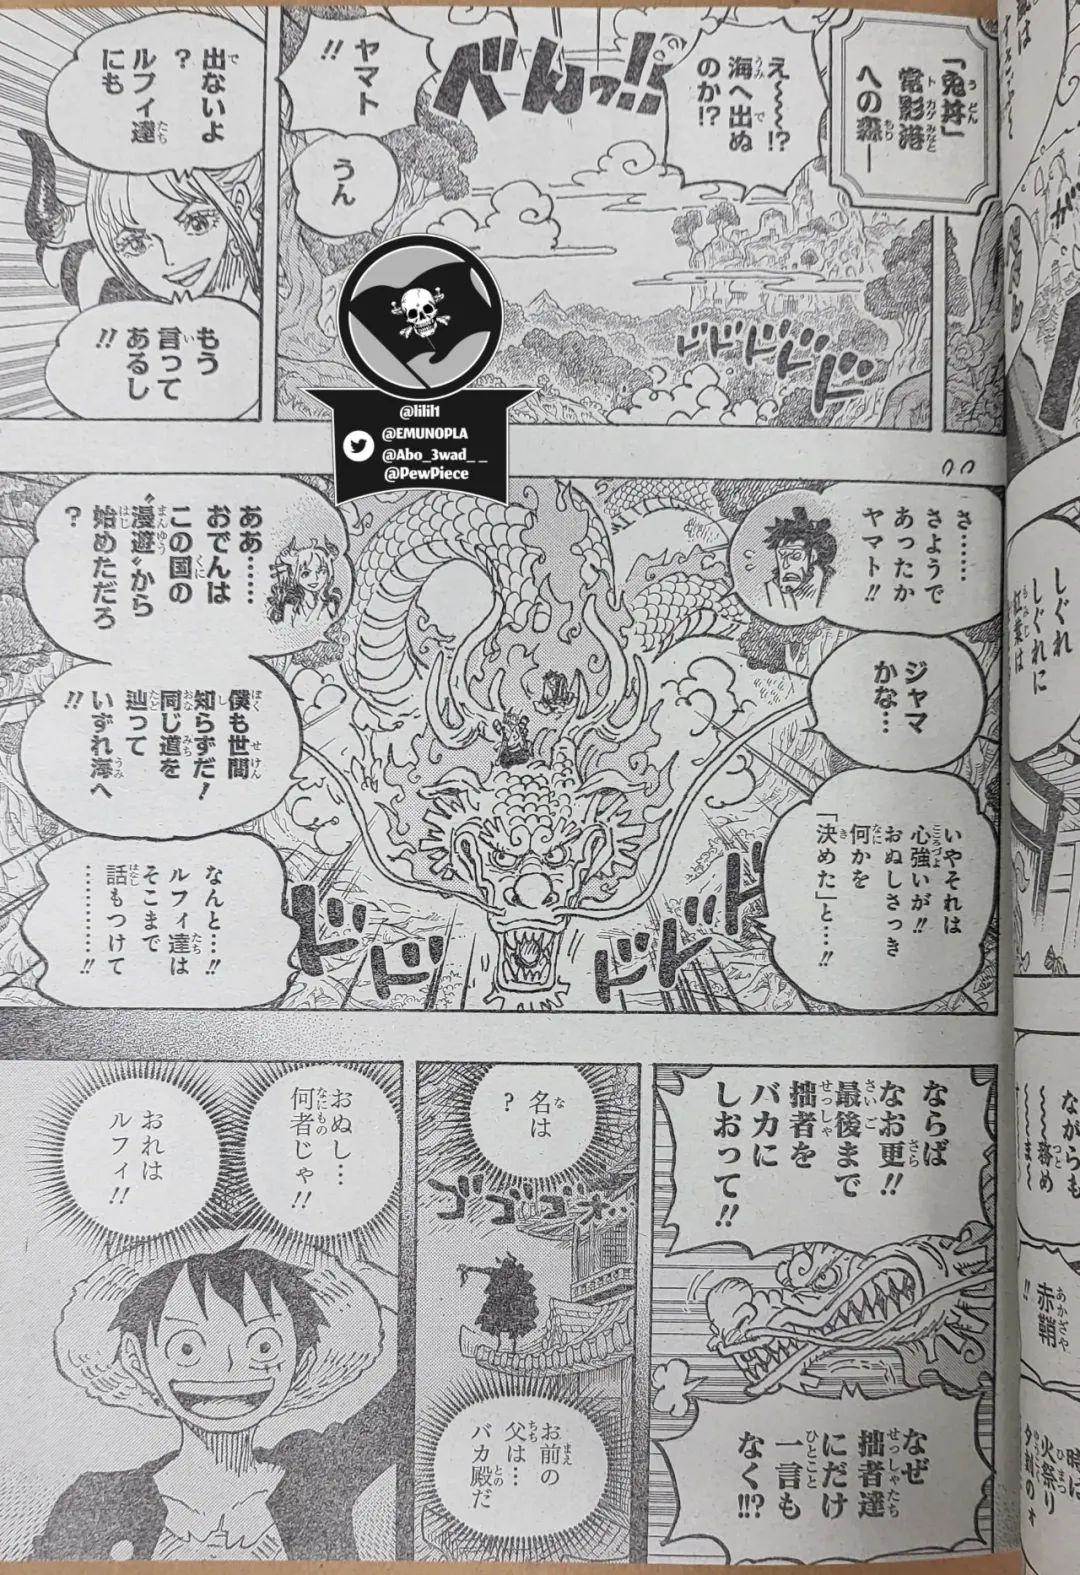 「兎丼」
常影港
への森―
え〜〜〜!?
海へ出ぬ
のか!?
べんっ!!
ヤマト
!!
うん
ドドドドドド
出ないよ
?
ルフィ達
にも
もう
言って
あるし
!!
@lilil1
@EMUNOPLA
@Abo_3wad_ _
@PewPiece
さ……
さようで
あったか
ヤマト!!
ジャマ
かな…
いやそれは
心強いが!!
おぬしさっき
何かを
「決めた」と…!!
ああ……
おでんは
この国の
〝漫遊〟から
始めただろ
?
僕も世間
知らずだ!
同じ道を
辿って
いずれ海へ
!!
なんと…!!
ルフィ達は
そこまで
話もつけて
…………!!
ドドド
ドドドド
ならば
なお更!!
最後まで
拙者を
バカに
しおって!!
なぜ
拙者達
にだけ
一言も
なく!!?
名は
?
ゴゴゴゴオ…
お前の
父は…
バカ殿だ
おぬし…
何者じゃ!!
おれは
ルフィ!!
しぐれ
しぐれに
紅葉は
ながらも
〜〜務め
〜〜ま〜
赤鞘
!!
時は
火祭り
夕刻の